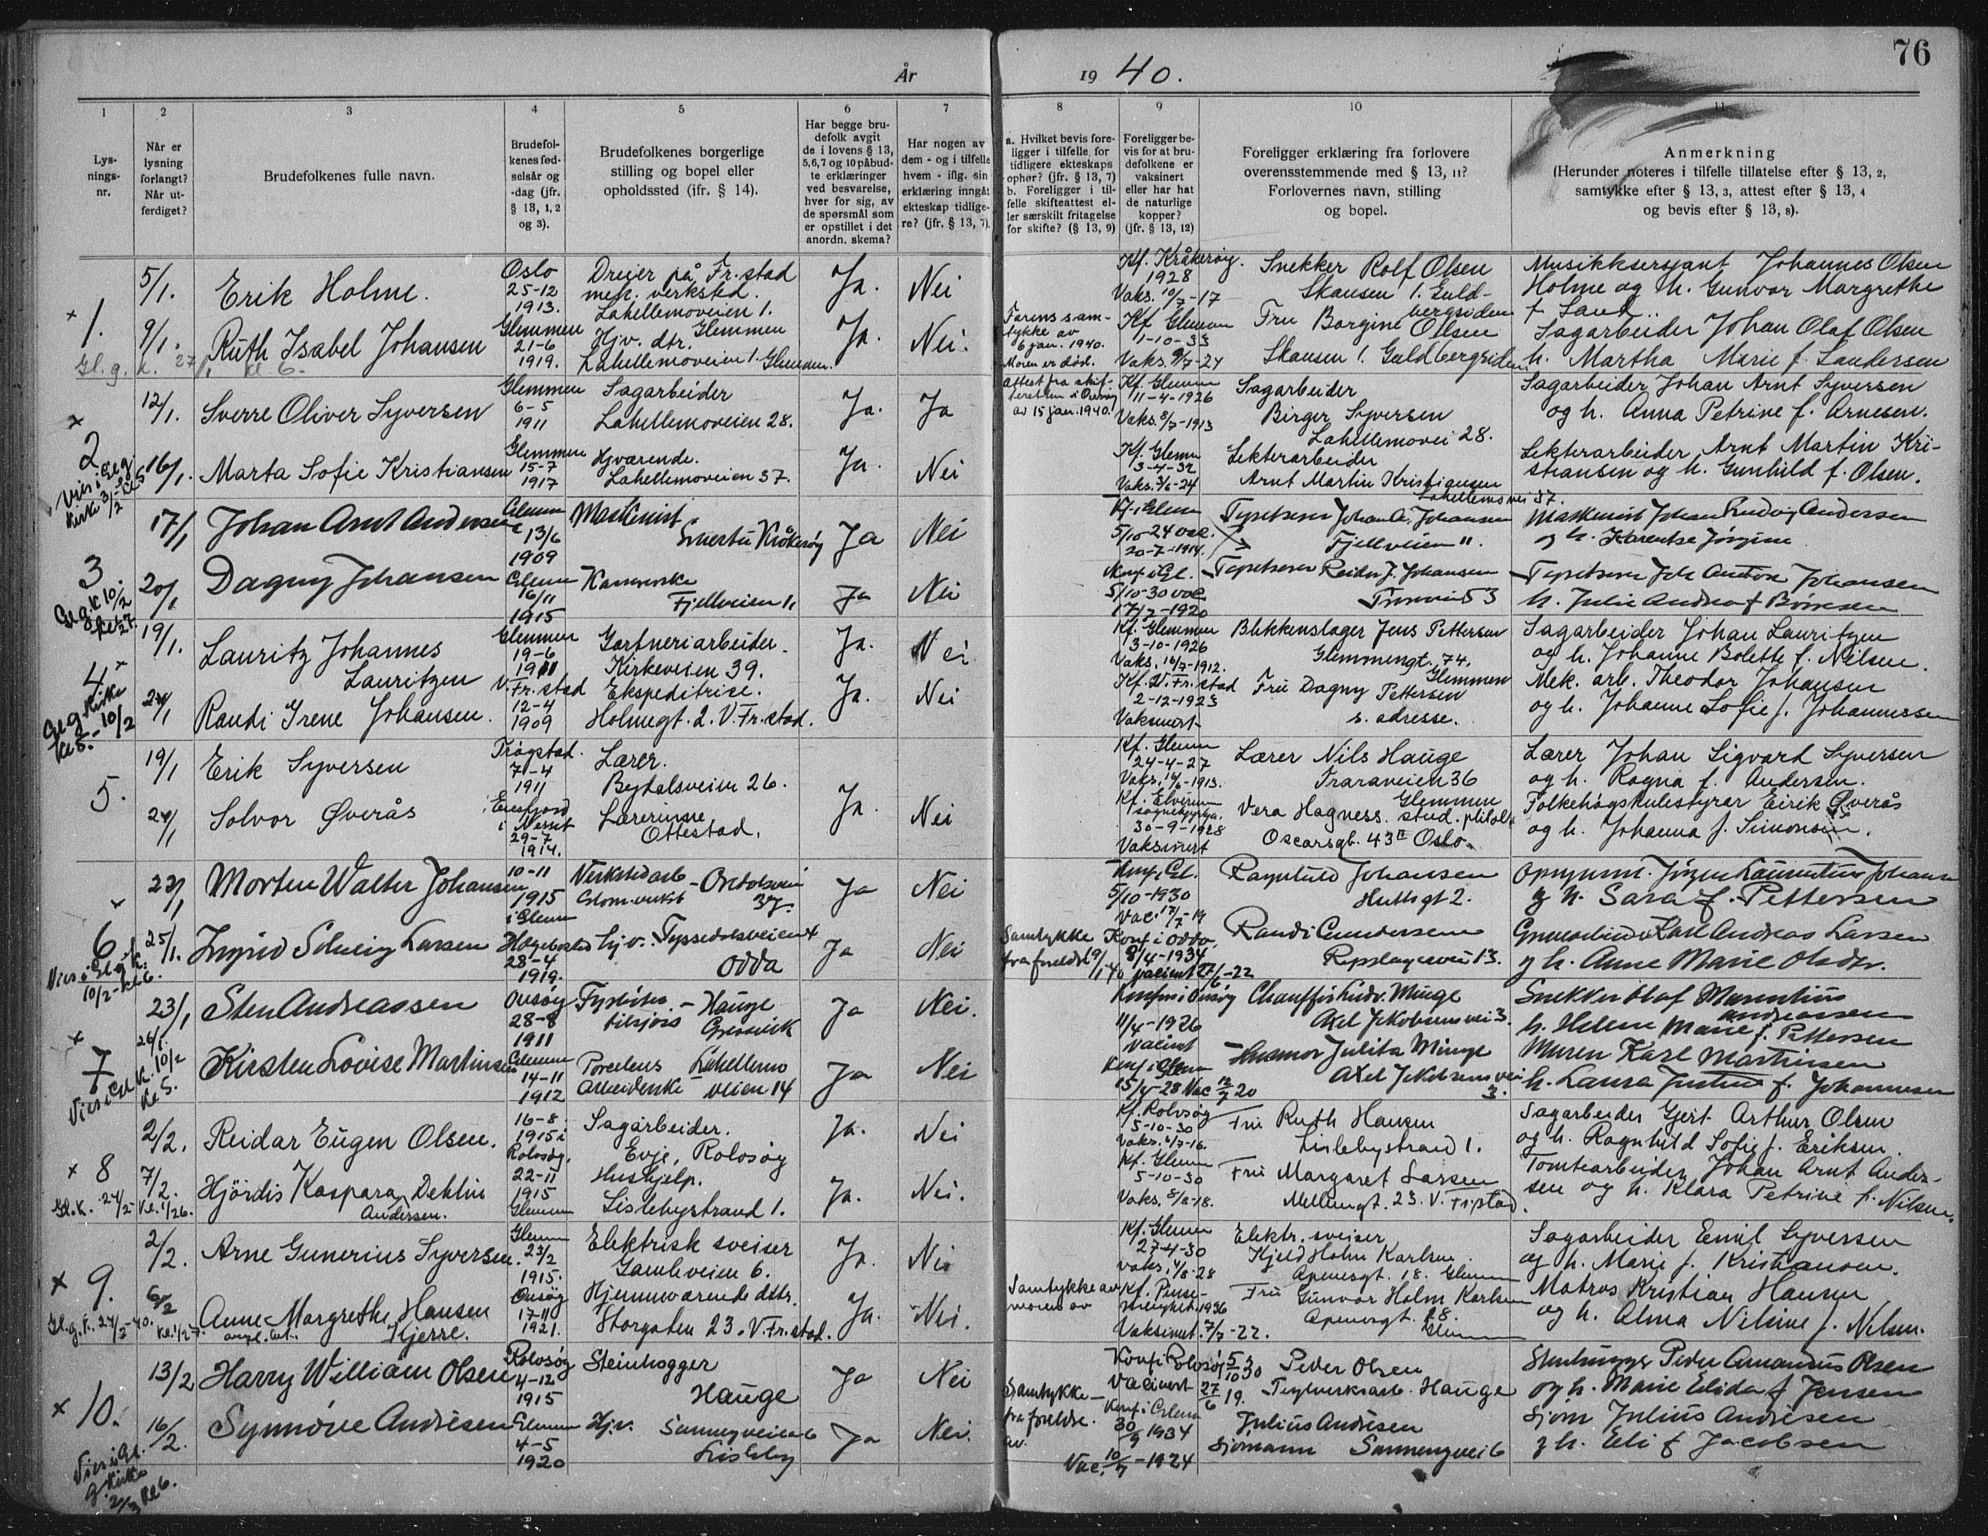 År 1940.
76
1
2
3
4
5
6
7
8
9
10
11
Lys-
nings-
nr.
Når er
lysning
forlangt?
Når ut-
ferdiget?
Brudefolkenes fulle navn.
Brudefol-
kenes fød-
selsår og
-dag (jfr.
§ 13, 1, 2
og 3).
Brudefolkenes borgerlige
stilling og bopel eller
opholdssted (jfr. § 14).
Har begge bru-
defolk avgit
de i lovens § 13,
5, 6, 7 og 10 påbud-
te erklæringer
ved besvarelse,
hver for sig, av
de spørsmål som
er opstillet i det
anordn. skema?
Har nogen av
dem - og i tilfelle
hvem - iflg. sin
erklæring inngått
ekteskap tidlige-
re? (jfr. § 13, 7).
a. Hvilket bevis fore-
ligger i tilfelle for
tidligere ekteskaps
ophør? (jfr. § 13, 7)
b. Foreligger i til-
felle skifteattest el-
ler særskilt fritagelse
for skifte? (§ 13, 9)
Foreligger be-
vis for at bru-
defolkene er
vaksinert
eller har hat
de naturlige
kopper?
(jfr. § 13, 12)
Foreligger erklæring fra forlovere
overensstemmende med § 13, 11?
Forlovernes navn, stilling
og bopel.
Anmerkning
(Herunder noteres i tilfelle tillatelse efter § 13, 2,
samtykke efter § 13, 3, attest efter § 13, 4
og bevis efter § 13, 8).
1.
5/1.
Erik Holme.
Oslo
25-12
1913.
Dreier på Fr.stad
mek. verksted.
Lahellemoveien 1.
Glemmen
Ja.
Nei
Kf. Kråkerøy.
1928
Vaks. 10/7-17
Snekker Rolf Olsen
Skansen 1. Guld-
bergsiden
Musikksersjant Johannes Olsen
Holme og h. Gunvor Margrethe
f. Sand.
9/1.
Ruth Isabel Johansen
Glemmen
21-6
1919.
Hjv. dtr.
Lahellemoveien 1. Glemmen.
Ja.
Nei.
Farens sam-
tykke av
6 jan. 1940.
Moren er død.
Kf Glemm
1-10-33
Vaks. 9/7-24
Fru Borgine Olsen
Skansen 1. Guldbergsiden
Sagarbeider Johan Olaf Olsen
h. Martha Marie f. Landersen
2
12/1.
Sverre Oliver Syversen
Glemmen
6-5
1911
Sagarbeider
Lahellemoveien 28.
Ja.
Ja
Attest fra skif-
teretten i Onsøy
av 15 jan. 1940.
Kf. Glemm
11-4-1926
Vaks. 8/7-1913
Sagarbeider
Birger Syversen
Lahellemovei 28.
Sagarbeider Johan Arnt Syversen
og h. Anna Petrine f. Arnesen.
16/1.
Marta Sofie Kristiansen
Glemmen
15-7
1917
Hjværende.
Lahellemoveien 37.
Ja.
Nei
Kf. Glemm
3-4-32
Vaks. 3/6-24
Lekterarbeider
Arnt Martin Kristiansen
Lahellemovei 37.
Lekterarbeider Arnt Martin Kri-
stiansen og h. Gunhild f. Olsen.
3
17/1
Johan Arnt Andersen
Glemm
13/6
1909
Maskinist
Smertu Kråkerøy
Ja
Nei
5/10-24 vac.
20-7-1914.
Johan A. Johansen
Fjellveien 11.
Maskinist Johan Ludvig Andersen
og h. Karentse Jørgine
20/1
Dagny Johansen
Glemm
16/11
1915
Fjellveien 11
Ja
Nei
Konf i Gl.
5/10-30 vac
17/7-1920
Reidar J. Johansen
h. Julie Andrea f Börresen
4
19/1.
Lauritz Johannes
Lauritzen
Glemmen
19-6
1911
Gartneriarbeider.
Kirkeveien 39.
Ja.
Nei
Kf. Glemmen
3-10-1926
Vaks. 16/7-1912.
Blikkenslager Jens Pettersen
Glemmengt. 74.
Glemmen
Sagarbeider Johan Lauritzen
og h. Johanne Bolette f. Nilsen.
24/1
Randi Irene Johansen.
V. Fr.stad
12-4
1909
Ekspeditrise.
Holmegt. 2. V. Fr.stad.
Ja.
Nei
Kf. V. Fr.stad
2-12-1923
Vaksinert
Fru Dagny Pettersen
s. adresse.
Mek. arb. Theodor Johansen
og h. Johanne Sofie f. Johannessen
5.
19/1
Erik Syversen
Trøgstad.
7-4
1911
Lærer.
Bydalsveien 26.
Ja.
Kf. Glemm
24-4-27
Vaks. 14/6-1913.
Lærer Nils Hauge
Traraveien 36
Glemmen
Lærer Johan Sigvard Syversen
og h. Ragna f. Andersen.
24/1
Solvor Øverås
Eresfjord
i Nesset
29-7
1914.
Lærerinne
Ottestad.
Nei
Kf. Elverum
30-9-1928
Vaksinert
Vera Hagness. stud. philol.
Oscarsgt. 43 II Oslo.
Folkehøgskulestyrar Eirik Øverås
og h. Johanna f. Simonsen.
6
23/1
Morten Walter Johansen
10-11
1915
i Glemm
Verkstedarb
Glom.verkst
Ordalsvei
37.
Ja
Nei
Konf i Gl.
5/10-1930
Vac. 17/7-19
Ragnhild Johansen
Huttigt 2.
Jørgen Laurentius Johansen
g h. Sara f. Pettersen
25/1.
Ingrid Solveig Larsen
28-4
1919.
Hjv. Tyssedalsveien 4
Odda
Ja
Nei
Samtykke
fra foreldre 9/1 40
Konf i Odda
8/4-1934
vaksinert 27/6-22
Randi Gundersen
Repslagerveien 13.
Karl Andreas Larsen
g h. Anne Marie Olsdtr.
7
23/1
Sten Andreassen
Onsøy
28-8
1911
Fyrbøter
tilsjøss - Hauge
Gressvik
Ja
Nei.
Konf i Onsøy
11/4-1926
Vacinert
Chauffør Ludv. Minge
Axel Jakobsensvei 3.
Snekker Olaf Marentius
Andreassen
h. Helene Marie f. Pettersen
26/1.
Kirsten Lovise Martinsen
Glemm
14-11
1912
Porcelens
arbeiderske
Lahellemo
veien 14
Ja
Nei
Konf i Glemm
15/4-28 Vac 12/7 20
Husmor Julita Minge
Axel Jakobsens vei
3.
Murer Karl Martinsen
h. Laura Justine f. Johannesen
8
2/2.
Reidar Eugen Olsen.
16-8
1915 i
Rolvsøy.
Sagarbeider.
Evje, Rolvsøy
Ja.
Nei
Kf. Rolvsøy
5-10-30
Vaks. 4/7-16.
Fru Ruth Hansen
Lislebystrand 1.
Sagarbeider Gjert Arthur Olsen
og h. Ragnhild Sofie f. Eriksen.
7/2.
Hjördis Kaspara Dehlin
Andersen.
22-11
1915
Glemmen
Hushjelp.
Lislebystrand 1.
Ja.
Nei.
Kf. Glemm
5-10-30
Vaks. 8/8-18.
Fru Margaret Larsen
Mellemgt. 23. V. Fr.stad.
Tomtearbeider Johan Arnt Ander-
sen og h. Klara Petrine f. Nilsen.
9.
2/2.
Arne Gunerius Syversen.
Glemm
23/2
1915.
Elektrisk sveiser
Gamleveien 6.
Ja.
Nei
Kf. Glemm
27-4-30
Vaks. 4/8-28
Elektr. sveiser
Kjeld Holm Karlsen
Apenesgt. 18. Glemm
Sagarbeider Emil Syversen
og h. Marie f. Kristiansen.
6/2
Anne Margrethe Hansen
Kjerre.
Onsøy
17-11
1921.
Hjemmværende dtr.
Storgaten 23. V. Fr.stad.
Ja.
Nei.
Samtykke av
moren av
Vaksinert. 7/7-22.
Fru Gunvor Holm Karlsen
Apenesgt. 18.
Glemm
Matros Kristian Hansen
og h. Alma Nilsine f. Nilsen.
10.
13/2
Harry William Olsen
Rolvsøy
4-12
1915
Steinhogger
Hauge
Ja
Nei
Konf i Rolvsøy 5/10 30
Vacinert 27/6 19.
Peder Olsen
Teglverksarb. Hauge
Stenhugger Peder Amandus Olsen
og h. Marie Elida f Jensen
16/2.
Synnöve Andresen
Glemm
4-5
1920
Hjv. Sunnyveien 6
Lisleby
Ja
Nei.
Samtykke
fra foreldre.
av.
30/9 1934
Vac. 10/7-1924
Julius Andresen
Sjømann
Sjøm Julius Andresen
g h. Eli f Jacobsen